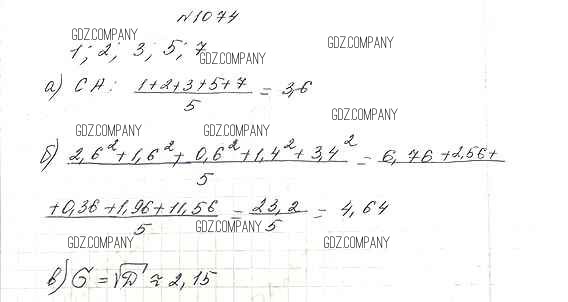 №1074
GDZ.COMPANY GDZ.COMPANY
1; 2; 3; 5; 7
GDZ.COMPANY
а) СА: (1+2+3+5+7)/5 = 3,6
GDZ.COMPANY
GDZ.COMPANY GDZ.COMPANY
б) (2,6² + 1,6² + 0,6² + 1,4² + 3,4²)/5 = 6,76 + 2,56 +
+ 0,36 + 1,96 + 11,56 / 5 = 23,2/5 = 4,64
GDZ.COMPANY GDZ.COMPANY GDZ.COMPANY
в) G = √D ≈ 2,15